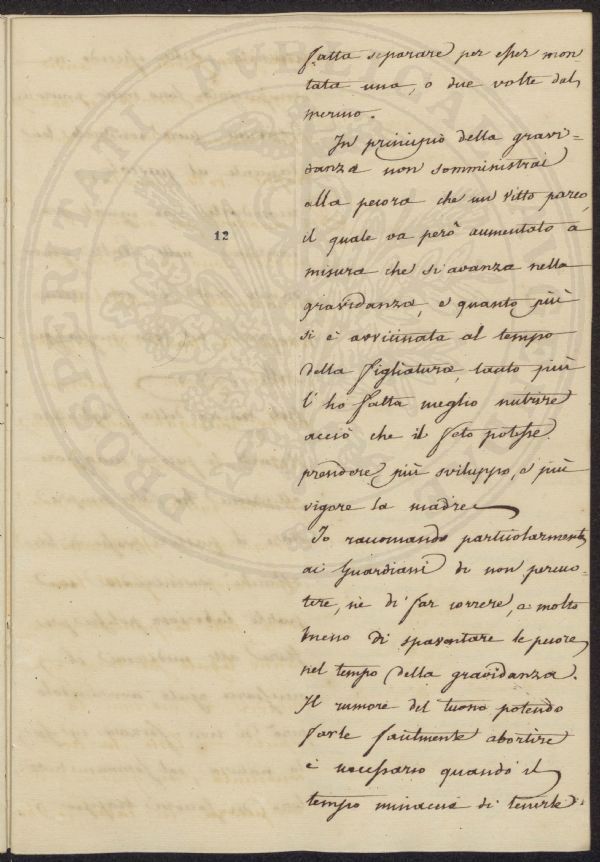 fatta separare per esser mon-
tata una, o due volte dal
merino.
In principio della gravi-
danza non somministrai
alla pecora che un vitto parco,
12
il quale va però aumentato a
misura che si avanza nella
gravidanza, e quanto più
si è avvicinata al tempo
della figliatura, tanto più
l'ho fatta meglio nutrire
acciò che il feto potesse
prendere più sviluppo, e più
vigore la madre.
Io raccomando particolarmente
ai Guardiani di non percuo-
tere, nè di far correre, e molto
meno di spaventare le pecore
nel tempo della gravidanza.
Il rumore del tuono potendo
farle facilmente abortire
è necessario quando il
tempo minaccia di tenerle
PROSPERITATI PUBLICAE